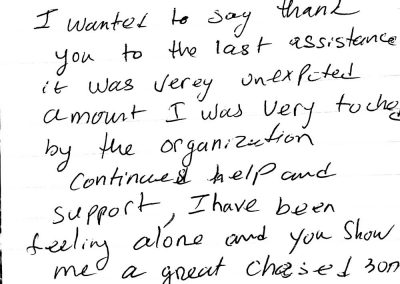 I wanted to say thank
you to the last assistance
it was verey unexpited
amount I was very touched
by the organization
continued help and
support, I have been
feeling alone and you show
me a great